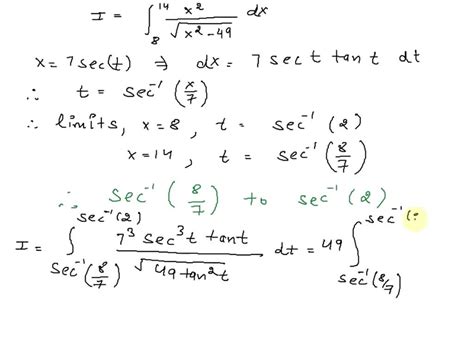 I = ∫₈¹⁴ x²/√(x²-49) dx
x = 7 sec(t) ⇒ dx = 7 sec t tan t dt
∴ t = sec⁻¹(x/7)
∴ limits, x = 8, t = sec⁻¹(2)
x = 14, t = sec⁻¹(8/7)
∴ sec⁻¹(8/7) to sec⁻¹(2)
I = ∫_{sec⁻¹(8/7)}^{sec⁻¹(2)} 7³ sec³t tant/√(49 tan²t) dt = 49 ∫_{sec⁻¹(8/7)}^{sec⁻¹(